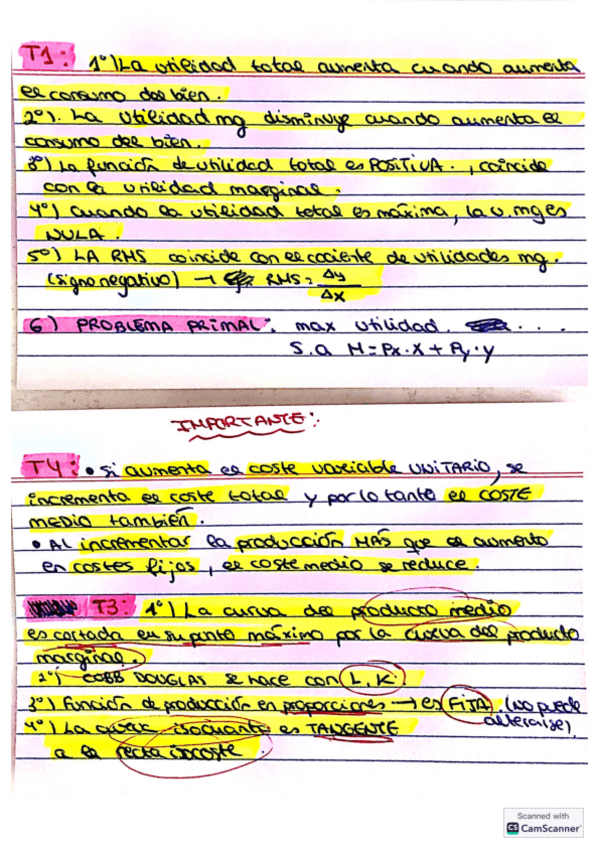 T1: 1º) La utilidad total aumenta cuando aumenta
el consumo del bien.
2º). La utilidad mg disminuye cuando aumenta el
consumo del bien.
3º) La función de utilidad total es POSITIVA., coincide
con la utilidad marginal.
4º) Cuando la utilidad total es máxima, la u.mg es
NULA.
5º) LA RMS coincide con el cociente de utilidades mg.
(signo negativo) → RMS = Δy
Δx
6) PROBLEMA PRIMAL: max utilidad. ...
S.a M=Px·X+Py·y
IMPORTANTE:
T4: • Si aumenta el coste variable UNITARIO, se
incrementa el coste total y por lo tanto el COSTE
MEDIO también.
• Al incrementar la producción MÁS que el aumento
en costes fijos, el coste medio se reduce.
T3: 1º) La curva del producto medio
es cortada en su punto máximo por la curva del producto
marginal.
2º) COBB DOUGLAS se hace con L, K
3º) Función de producción en proporciones → es FIJA. (no puede
alterarse).
4º) La curva isocuanta es TANGENTE
a la recta isocoste.
Scanned with
CS CamScanner